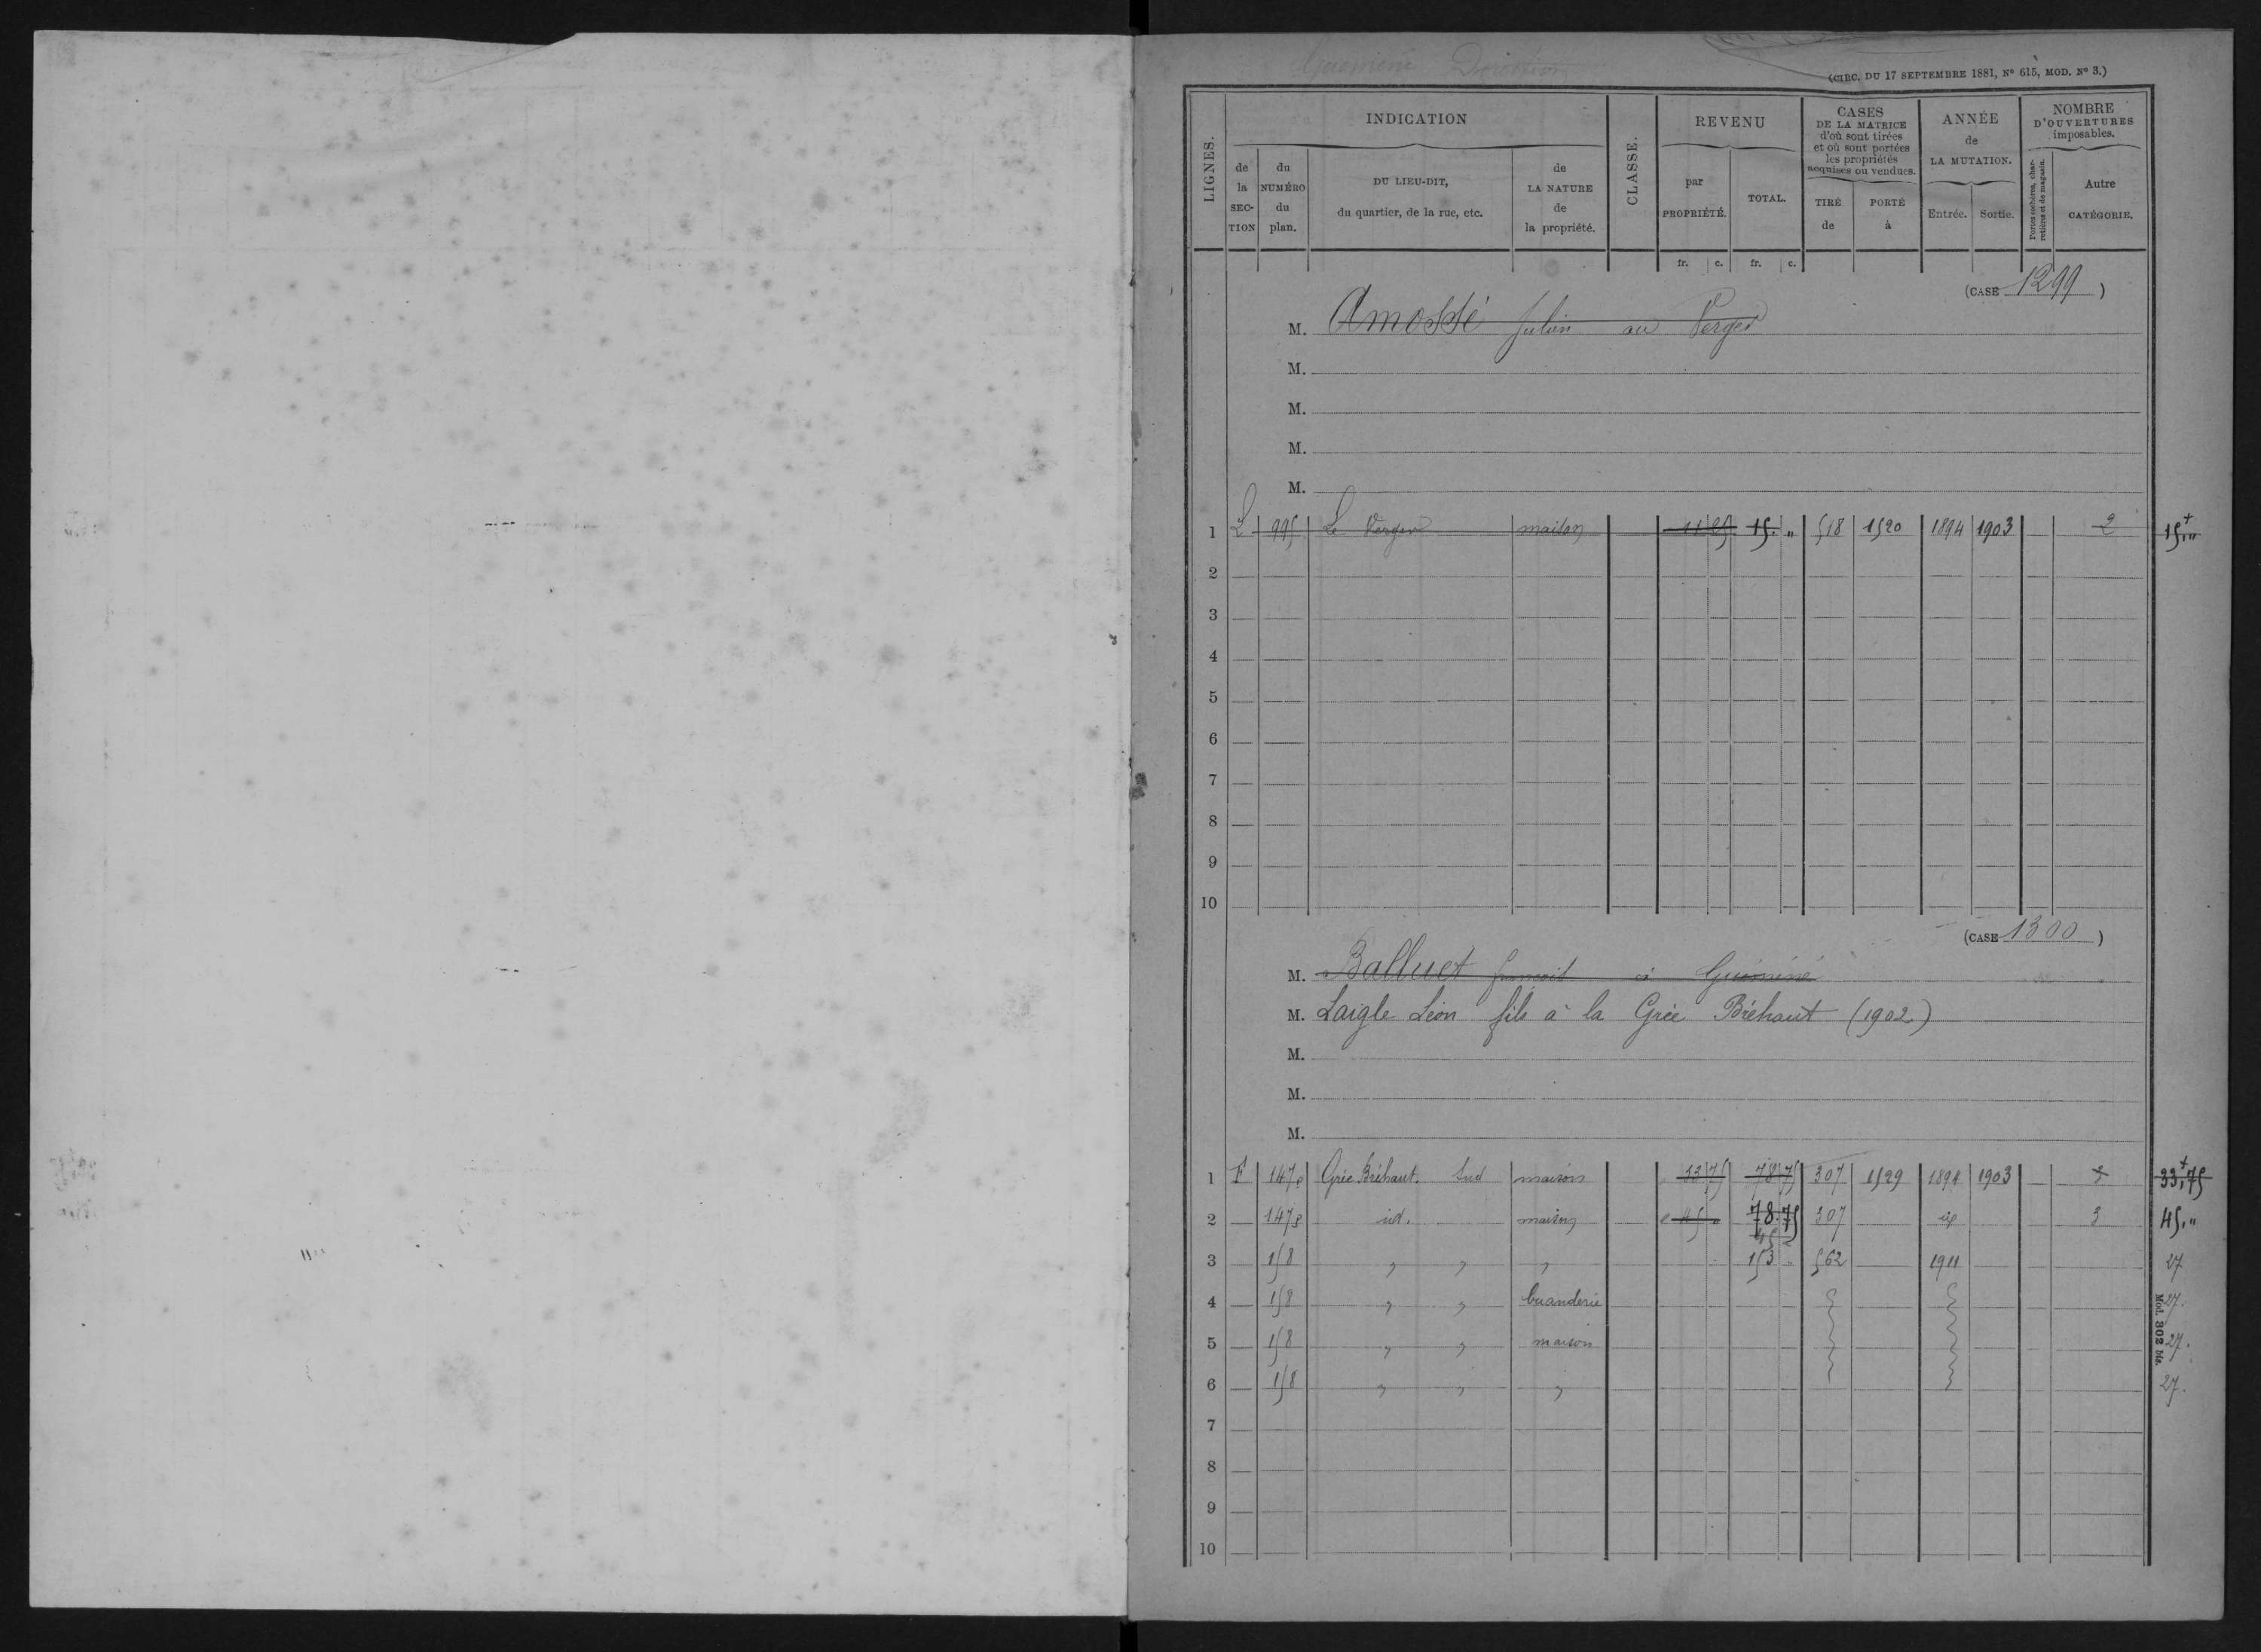 Guémené Direction
(CIRC. DU 17 SEPTEMBRE 1881, N° 615, MOD. N° 3.)
LIGNES. INDICATION CLASSE. REVENU CASES DE LA MATRICE d'où sont tirées et où sont portées les propriétés acquises ou vendues. ANNÉE de LA MUTATION. NOMBRE D'OUVERTURES imposables.
de la SECTION du NUMÉRO du plan. DU LIEU-DIT, du quartier, de la rue, etc. de LA NATURE de la propriété. par PROPRIÉTÉ. TOTAL. TIRÉ de PORTÉ à Entrée. Sortie. Portes cochères, charretières et de magasin. Autre CATÉGORIE.
fr. c. fr. c.
(CASE 1299)
M. Amossé Julien au Verger
M.
M.
M.
M.
1 L 995 Le Verger maison 11 25 15. " 518 1520 1894 1903 2 15,"
2
3
4
5
6
7
8
9
10
(CASE 1300)
M. Balluet françois à Guéméné
M. Laigle Léon fils à la Grée Bréhaut (1902)
M.
M.
M.
1 F 147p Grée Bréhaut. Sud maison 33 75 78 75 307 1529 1894 1903 33,75
2 147p id. maison 45 " 78.75 307 id 3 45,"
45
3 158 " " " 153 " 562 1911 27
4 158 " " buanderie 27.
5 158 " " maison 27.
6 158 " " " 27.
7
8
9
10
Mod. 302 bis.